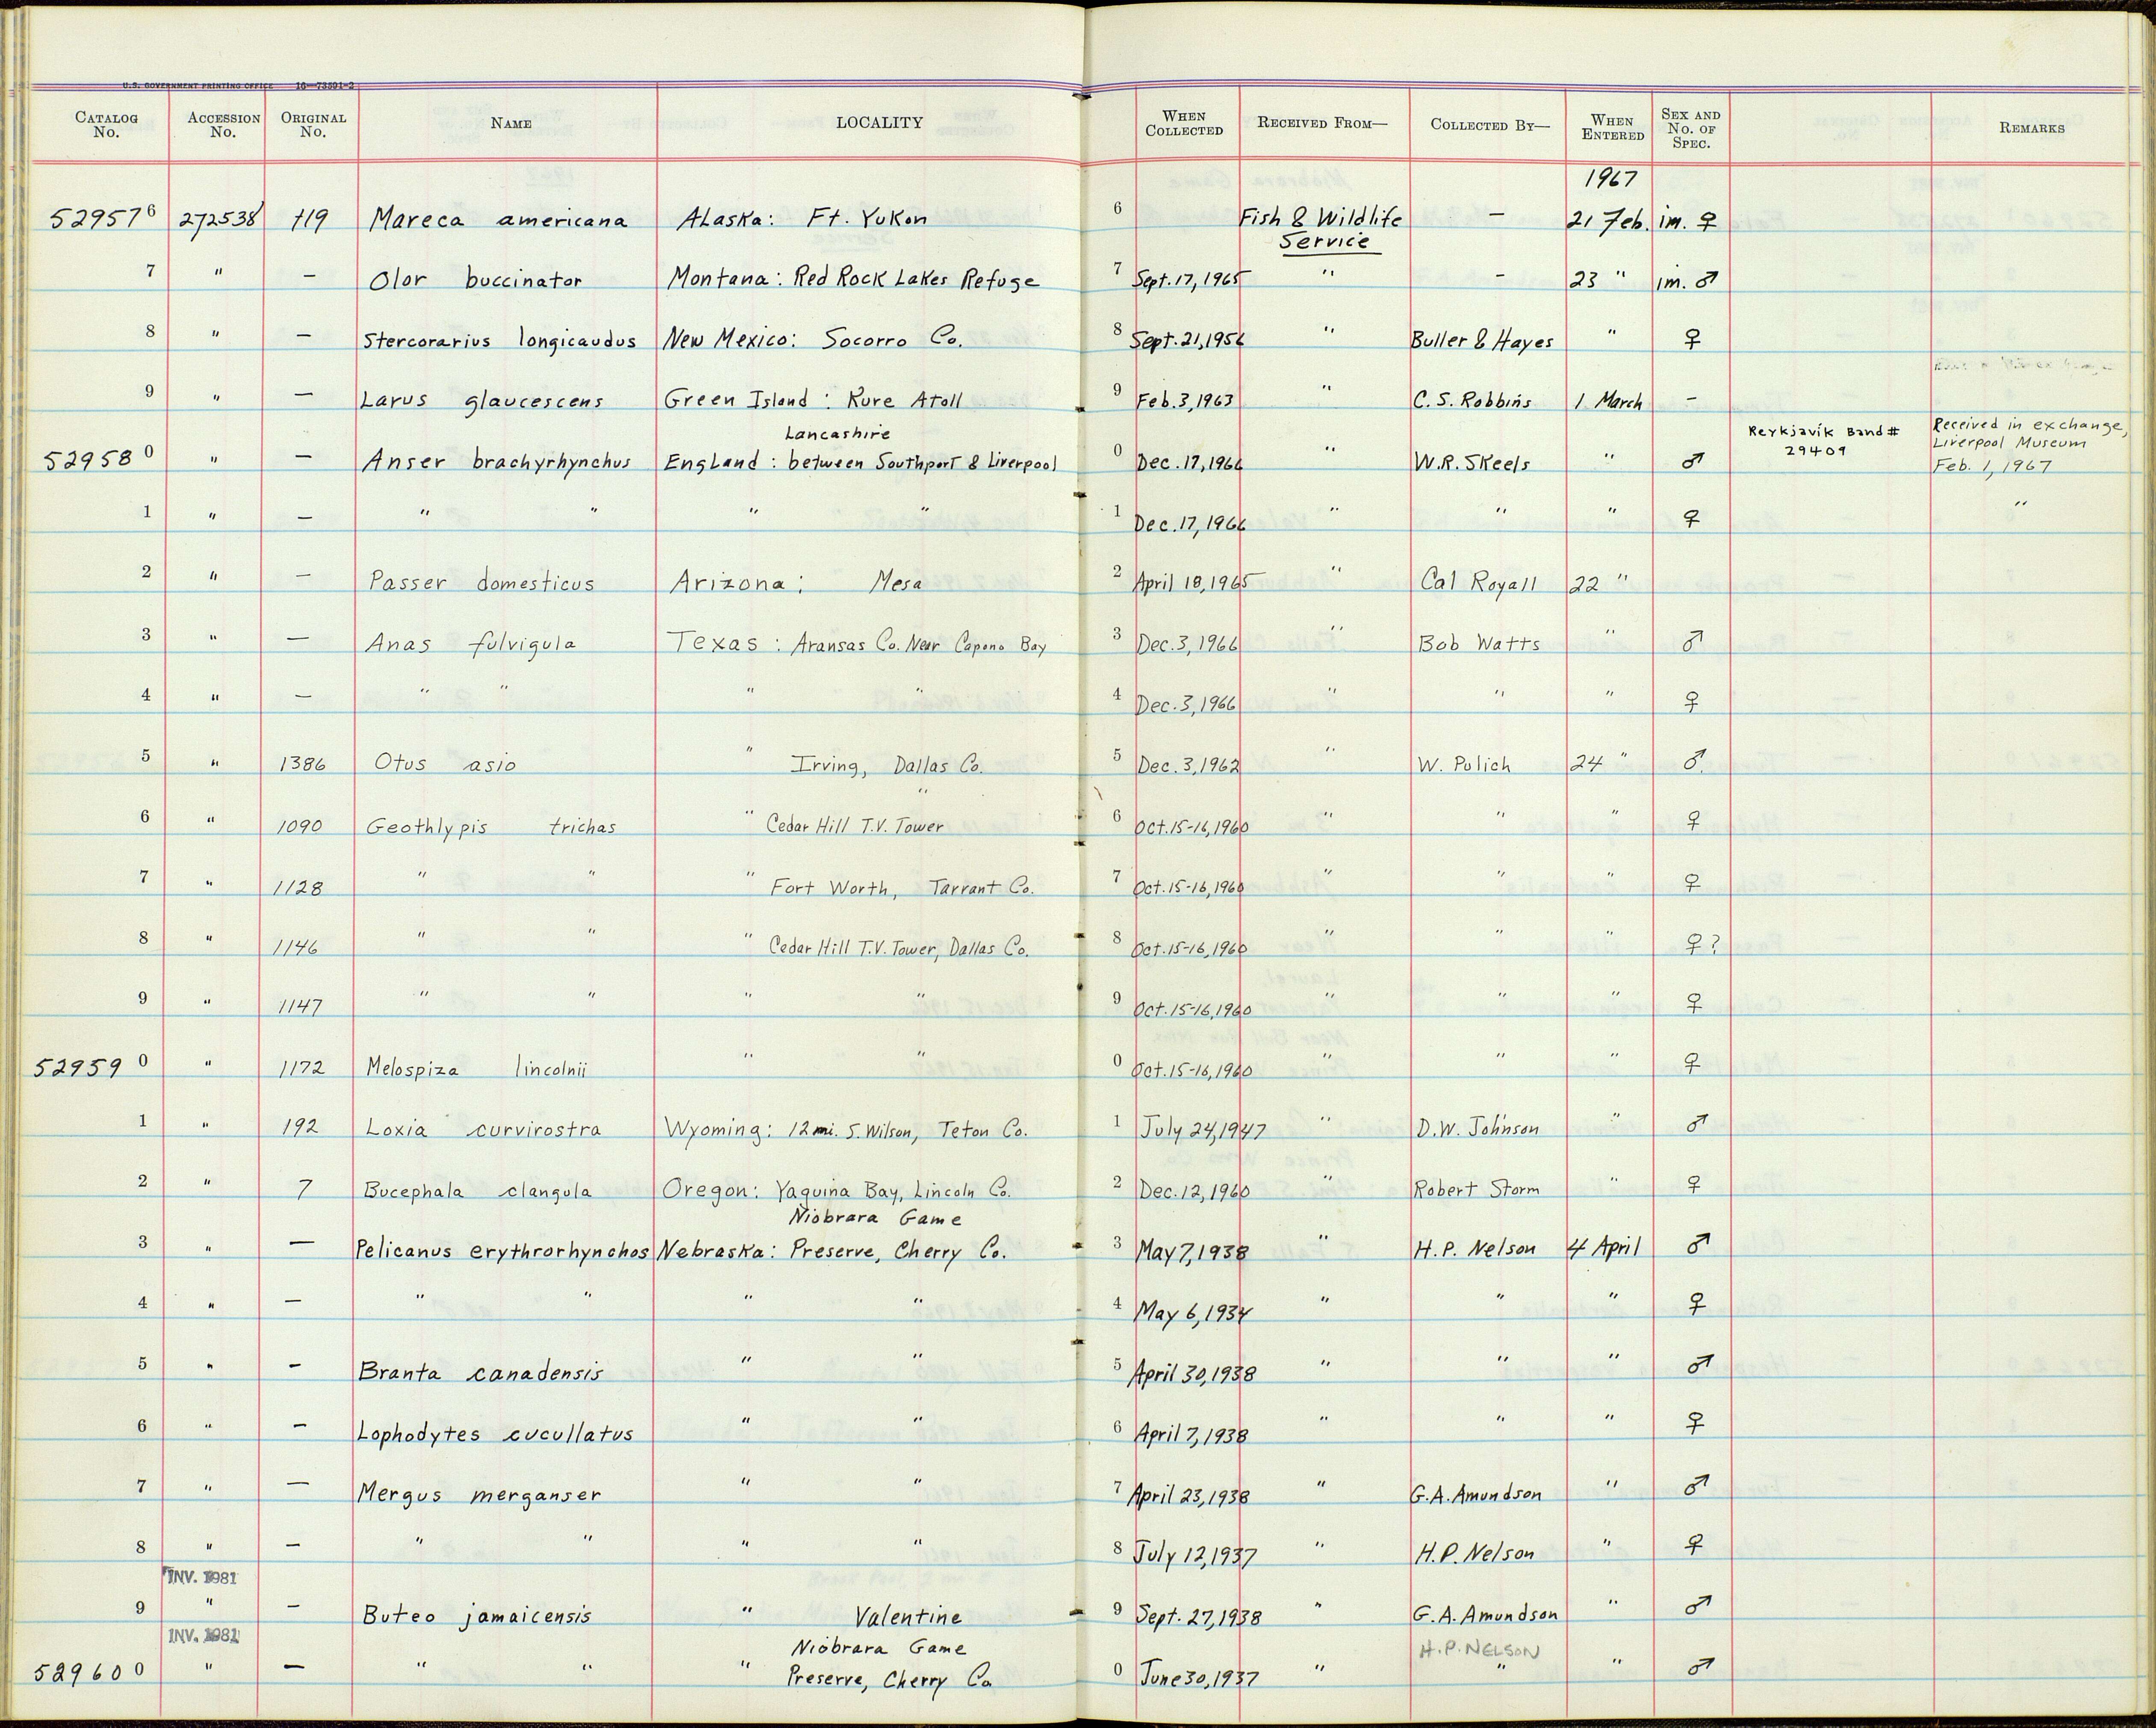 U.S. GOVERNMENT PRINTING OFFICE 16—73591-2
CATALOG No. ACCESSION No. ORIGINAL No. NAME LOCALITY WHEN COLLECTED RECEIVED FROM— COLLECTED BY— WHEN ENTERED SEX AND No. OF SPEC. REMARKS
1967
52957 6 272538 119 Mareca americana Alaska: Ft. Yukon 6 Fish & Wildlife Service — 21 Feb. im. ♀
7 " — Olor buccinator Montana: Red Rock Lakes Refuge 7 Sept. 17, 1965 " - 23 " im. ♂
8 " — Stercorarius longicaudus New Mexico: Socorro Co. 8 Sept. 21, 1956 " Buller & Hayes " ♀
9 " — Larus glaucescens Green Island : Kure Atoll 9 Feb. 3, 1963 " C. S. Robbins 1 March -
Lancashire
52958 0 " — Anser brachyrhynchus England : between Southport & Liverpool 0 Dec. 17, 1966 " W.R. Skeels " ♂ Reykjavík Band # 29409 Received in exchange, Liverpool Museum Feb. 1, 1967
1 " — " " " " 1 Dec. 17, 1966 " " " ♀ "
2 " — Passer domesticus Arizona: Mesa 2 April 18, 1965 " Cal Royall 22 "
3 " — Anas fulvigula Texas : Aransas Co. Near Capono Bay 3 Dec. 3, 1966 " Bob Watts " ♂
4 " — " " " " 4 Dec. 3, 1966 " " " ♀
5 " 1386 Otus asio " Irving, Dallas Co. 5 Dec. 3, 1962 " W. Pulich 24 " ♂
"
6 " 1090 Geothlypis trichas " Cedar Hill T.V. Tower 6 Oct. 15-16, 1960 " " " ♀
7 " 1128 " " " Fort Worth, Tarrant Co. 7 Oct. 15-16, 1960 " " " ♀
8 " 1146 " " " Cedar Hill T.V. Tower, Dallas Co. 8 Oct. 15-16, 1960 " " " ♀?
9 " 1147 " " " " 9 Oct. 15-16, 1960 " " " ♀
52959 0 " 1172 Melospiza lincolnii " " 0 Oct. 15-16, 1960 " " " ♀
1 " 192 Loxia curvirostra Wyoming: 12 mi. S. Wilson, Teton Co. 1 July 24, 1947 " D.W. Johnson " ♂
2 " 7 Bucephala clangula Oregon: Yaquina Bay, Lincoln Co. 2 Dec. 12, 1960 " Robert Storm " ♀
Niobrara Game
3 " — Pelicanus erythrorhynchos Nebraska: Preserve, Cherry Co. 3 May 7, 1938 " H. P. Nelson 4 April ♂
4 " — " " " " 4 May 6, 1934 " " " ♀
5 " — Branta canadensis " " 5 April 30, 1938 " " " ♂
6 " — Lophodytes cucullatus " " 6 April 7, 1938 " " " ♀
7 " — Mergus merganser " " 7 April 23, 1938 " G.A. Amundson " ♂
8 " — " " " " 8 July 12, 1937 " H.P. Nelson " ♀
INV. 1981
9 " — Buteo jamaicensis " Valentine 9 Sept. 27, 1938 " G.A. Amundson " ♂
INV. 1981
Niobrara Game H.P. NELSON
52960 0 " — " " " Preserve, Cherry Co. 0 June 30, 1937 " " " ♂